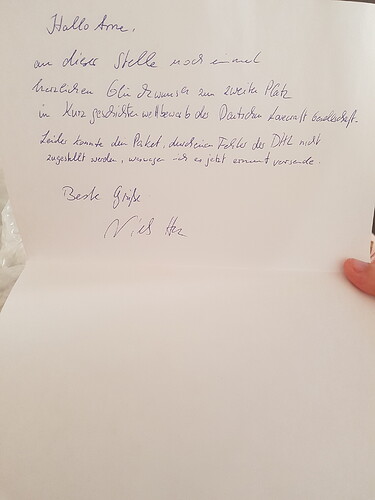 Hallo Arne,
an dieser Stelle noch einmal
herzlichen Glückwunsch zum zweiten Platz
in Kurzgeschichtenwettbewerb der Deutschen Lovecraft Gesellschaft.
Leider konnte dein Paket, durch einen Fehler der DHL nicht
zugestellt werden, weswegen ich es jetzt erneut versende.
Beste Grüße
Niels